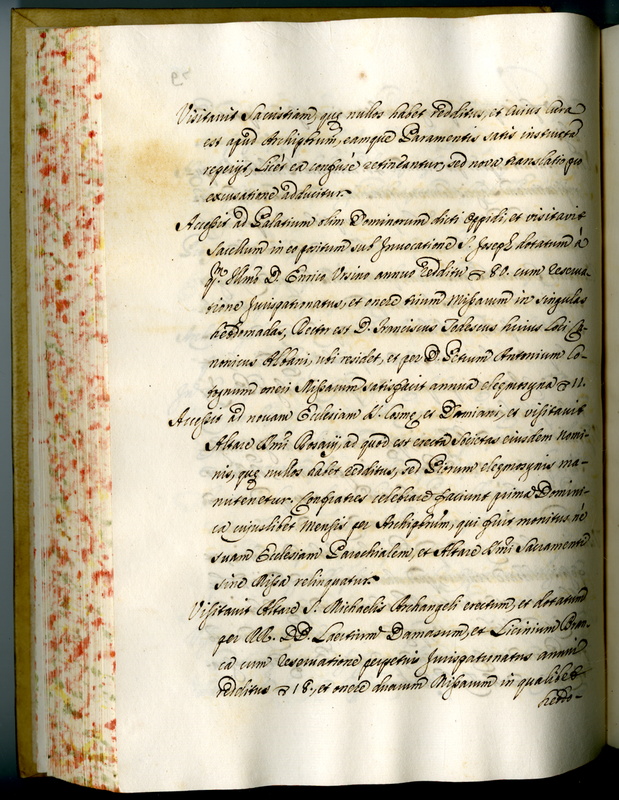 Visitavit Sacristiam, quę nullos habet redditus, et cuius cura
est apud Archiprbrum, eamque Paramentis satis instructã
reperijt, licèt ea confusè retineantur, sed nova translatio pro
excusatione adducitur.
Accessit ad Palatium olim Dominorum dicti Oppidi, et visitavit
Sacellum in eo positum sub Invocatione S. Joseph dotatum à
q. Illmo D. Enrico Ursino annuo redditu 80. cum reserva-
tione Jurispatronatus, et onere trium Missarum in singulas
hebdomadas, Rector est D. Franciscus Tedescus huius loci Ca-
nonicus Albani, ubi residet, et per D. Petrum Antonium
oneri Missarum satisfacit annua eleęmosyna 11.
Accessit ad novam Ecclesiam SS. Cosmę, et Damiani, et visitavit
Altare Smi Rosarij, ad quod est erecta Societas eiusdem nomi-
nis, quę nullos habet redditus, sed Piorum eleęmosynis ma-
nutenetur. Confratres celebrare faciunt prima Domini-
ca cujuslibet Mensis per Archiprbrum, qui fuit monitus, nè
suam Ecclesiam Parochialem, et Altare Smi Sacramenti
sine Missa relinquatur.
Visitavit Altare S. Michaelis Archangeli erectum, et dotatum
per DD. Laertium Damasum, et Licinium
ca cum reservatione perpetui Jurispatronatus annui
redditus 18., et onere duarum Missarum in qualibet
hebdo-